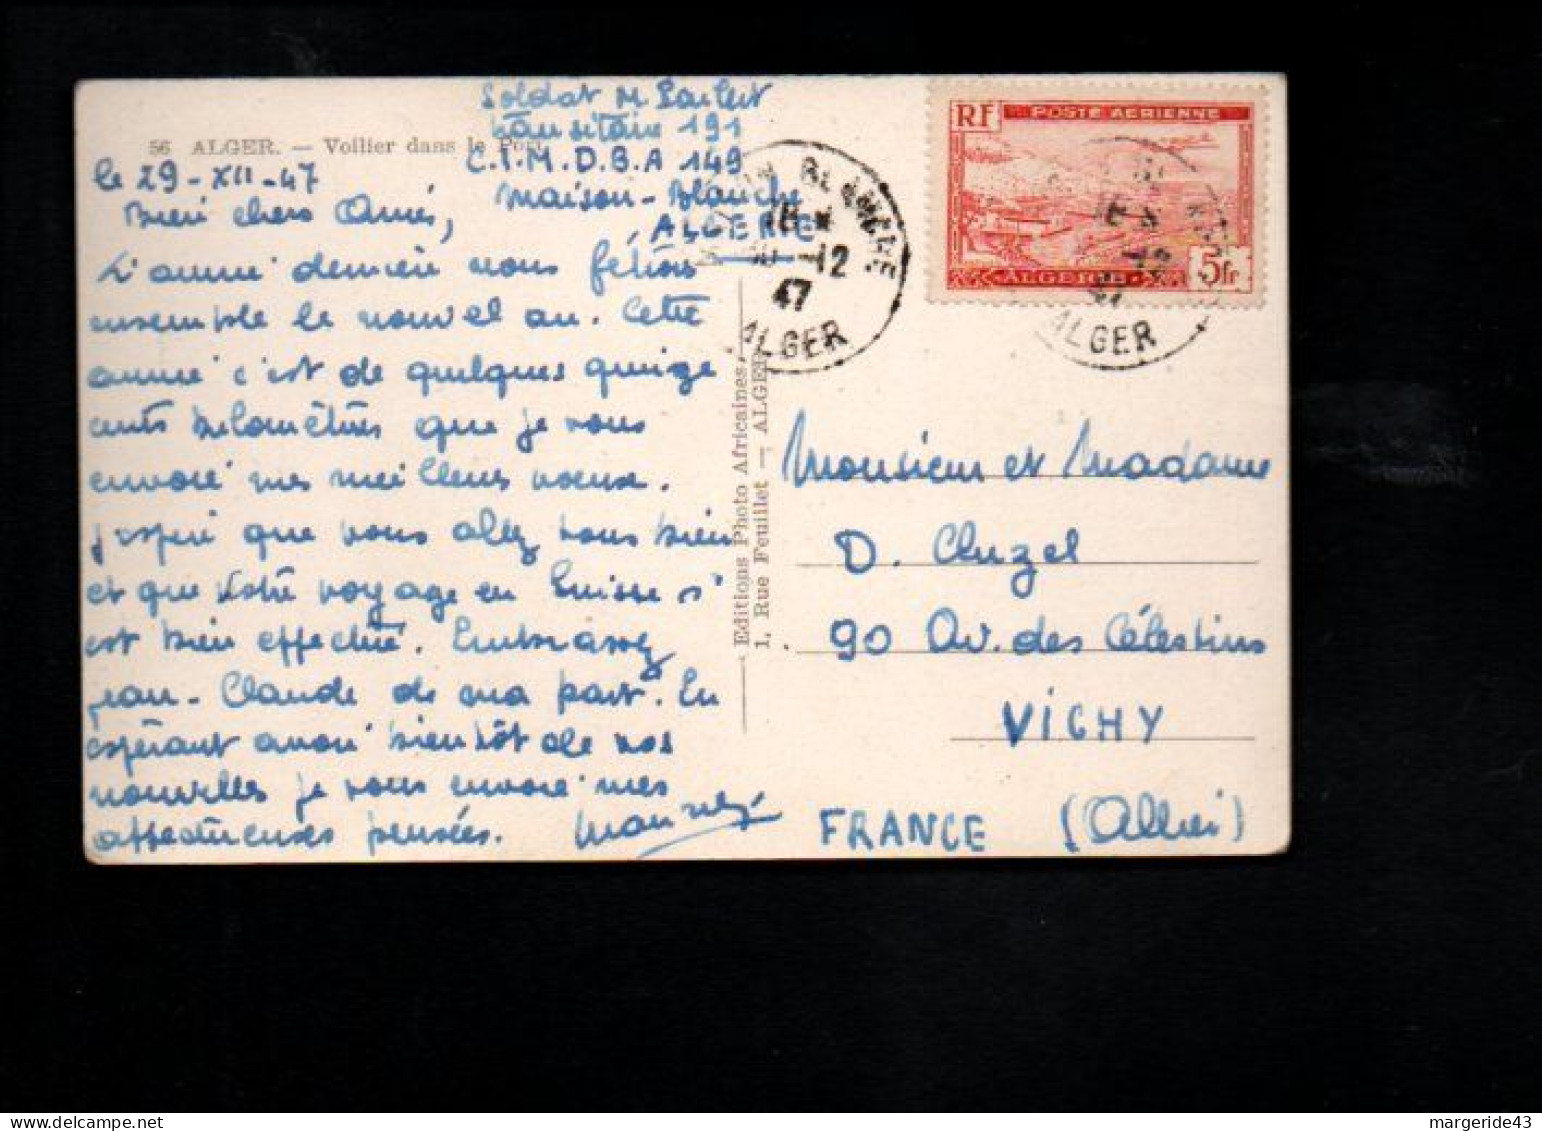 Soldat M
sanitaire 191
C.I.M.D.B.A 149
Maison-Blanche
ALGERIE
56 ALGER. — Voilier dans le Port
le 29-XII-47
Bien chers Amis,
L'année dernière nous fêtions
ensemble le nouvel an. Cette
année c'est de quelques quinze
cents kilomètres que je vous
envoie mes meilleurs voeux.
J'espère que vous allez tous bien
et que votre voyage en Suisse s'
est bien effectué. Embrassez
Jean-Claude de ma part. En
espérant avoir bientôt de vos
nouvelles je vous envoie mes
affectueuses pensées.
Editions Photo Africaines
1, Rue Feuillet — ALGER
BLANCHE
18 *
30 -12
47
ALGER
RF POSTE AERIENNE
ALGERIE 5fr
ALGER
Monsieur et Madame
D. Cluzel
90 Av. des Célestins
VICHY
FRANCE (Allier)
margeride43